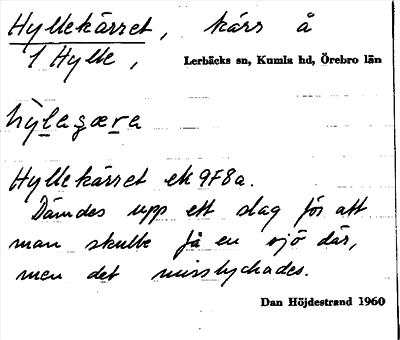 Hyllekärret, kärr å
1 Hylle, Lerbäcks sn, Kumla hd, Örebro län
Hyllekärret ek 9F8a.
Dämdes upp ett slag för att
man skulle få en sjö där,
men det misslyckades.
Dan Höjdestrand 1960